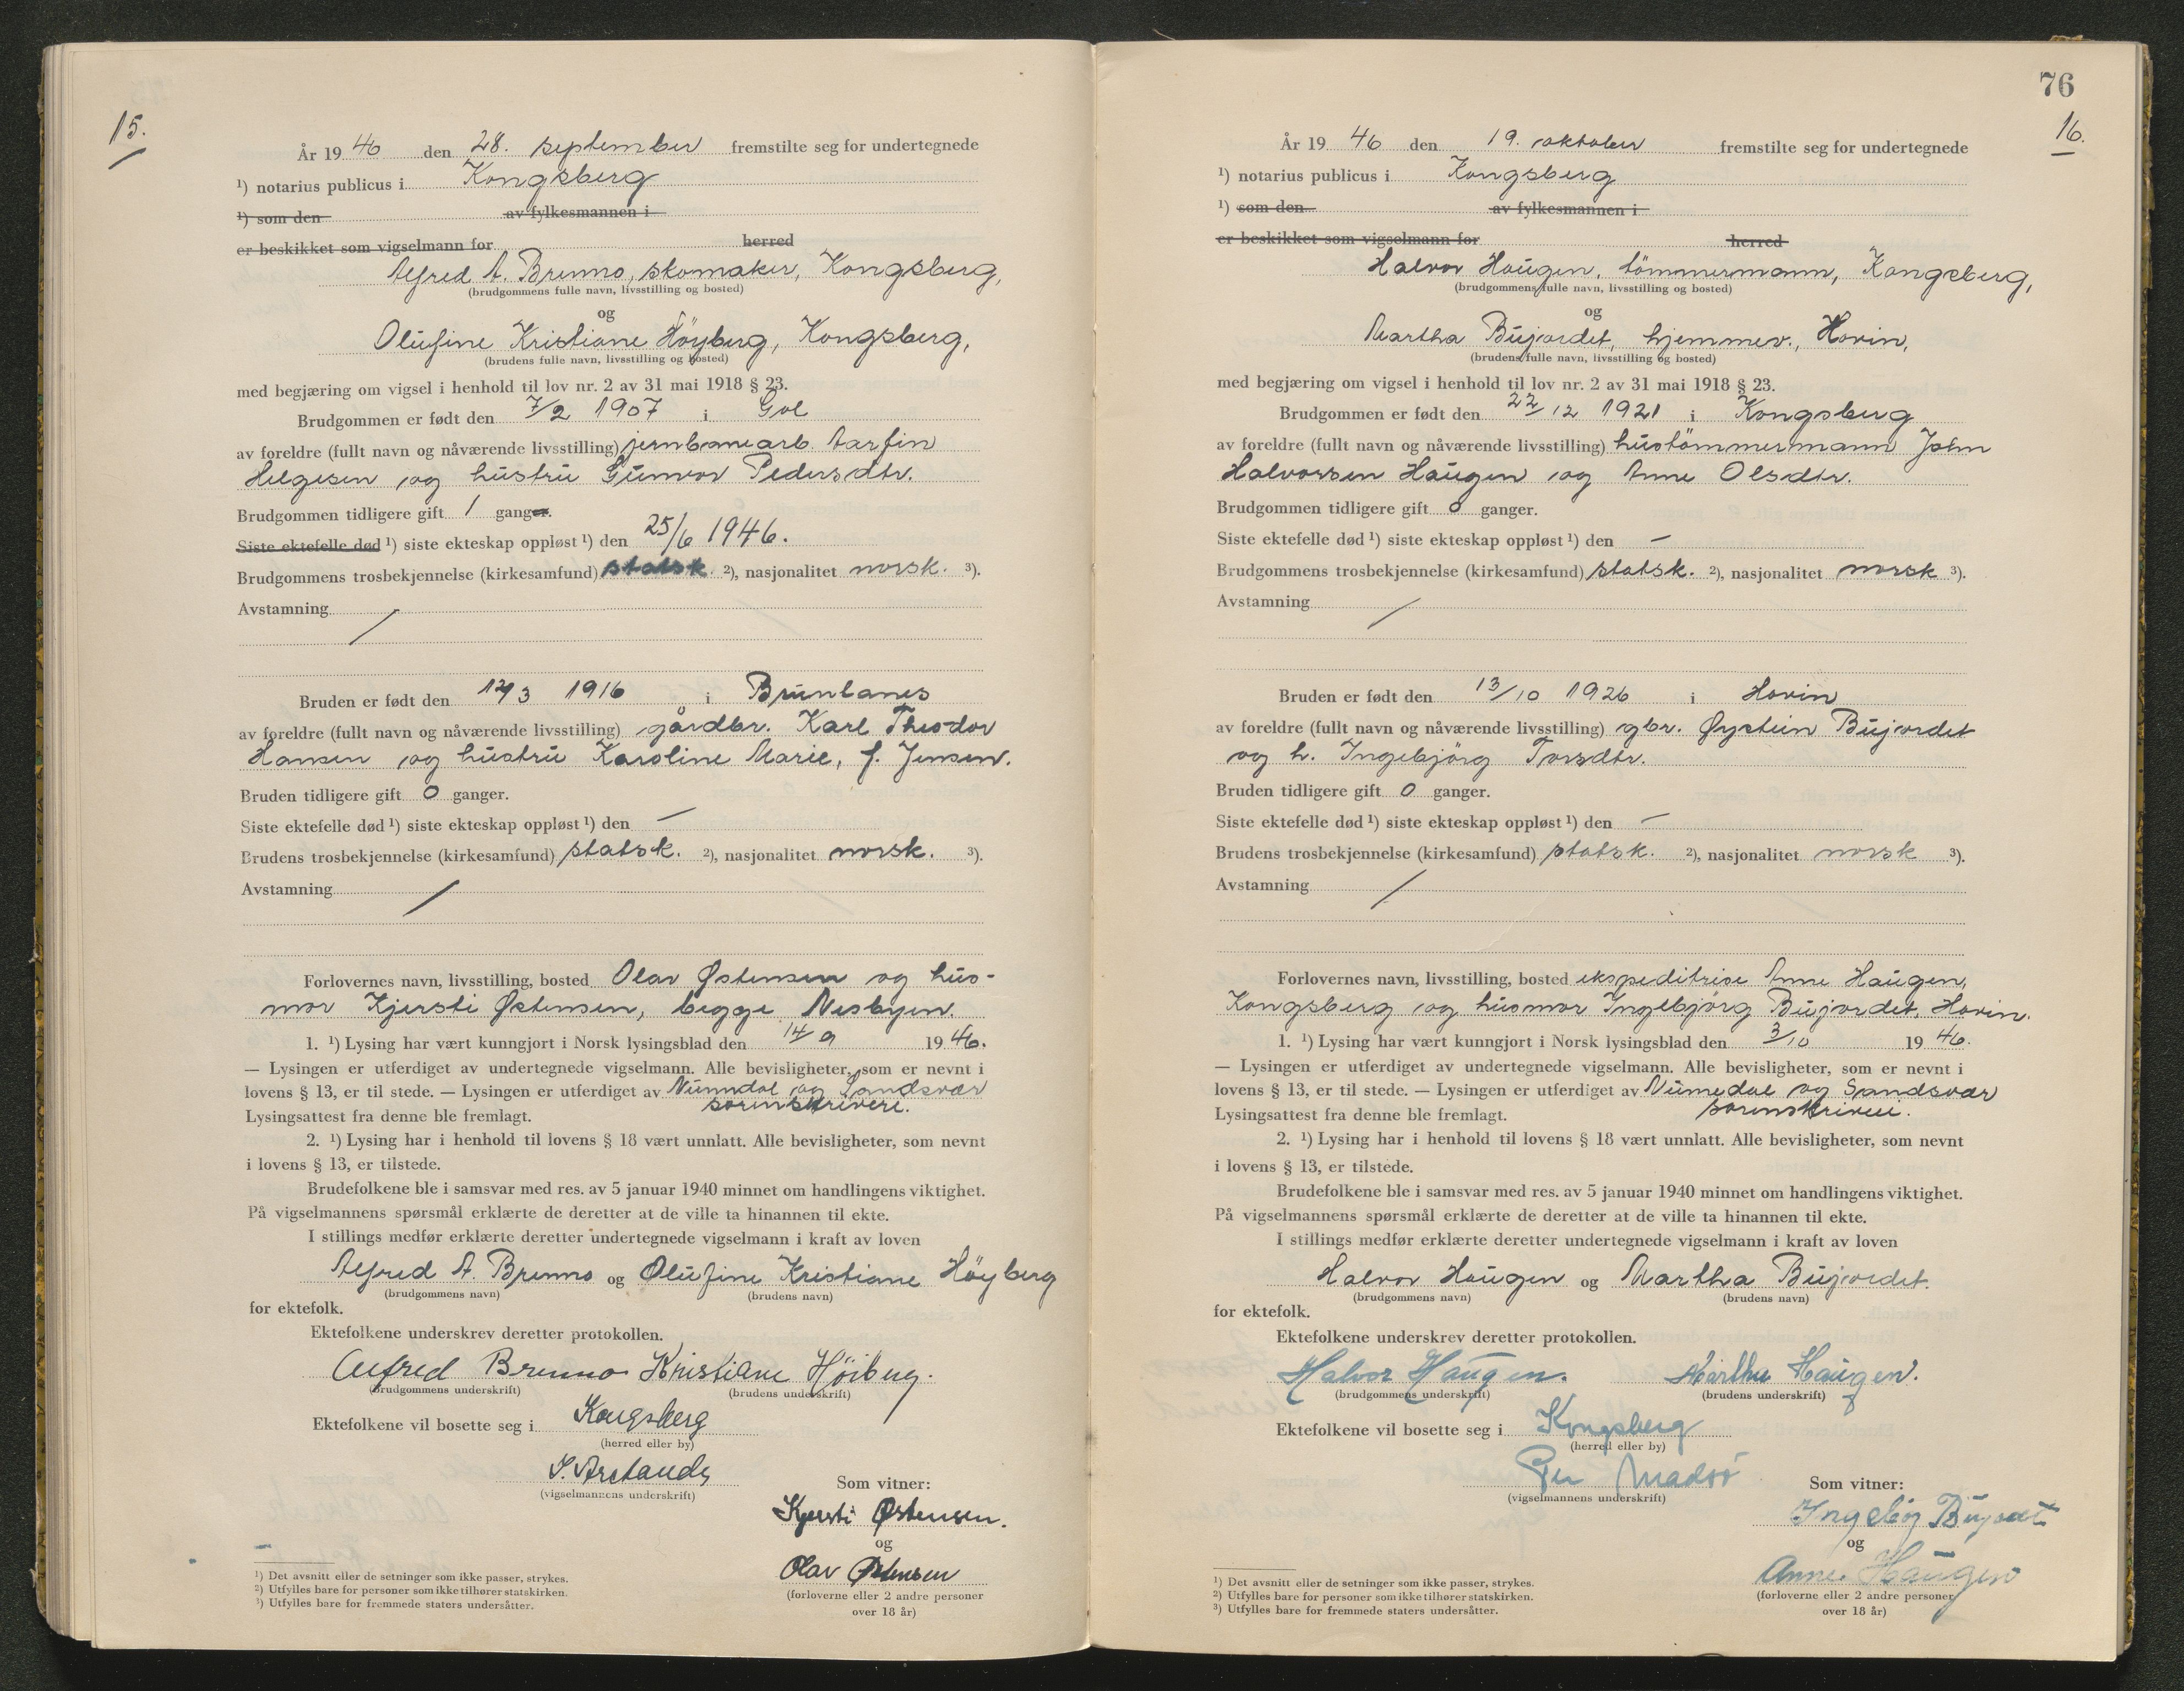 15.
År 1946 den 28. september fremstilte seg for undertegnede
¹) notarius publicus i Kongsberg
¹) som den av fylkesmannen i
er beskikket som vigselmann for herred
Alfred A. Brenno, skomaker, Kongsberg,
(brudgommens fulle navn, livsstilling og bosted)
og
Olufine Kristiane Höyberg, Kongsberg,
(brudens fulle navn, livsstilling og bosted)
med begjæring om vigsel i henhold til lov nr. 2 av 31 mai 1918 § 23.
Brudgommen er født den 7/2 1907 i Gol
av foreldre (fullt navn og nåværende livsstilling) jernbanearb. Aarfin
Helgesen og hustru Gunvor Pedersdtr.
Brudgommen tidligere gift 1 ganger.
Siste ektefelle død ¹) siste ekteskap oppløst ¹) den 25/6 1946.
Brudgommens trosbekjennelse (kirkesamfund) statsk. ²), nasjonalitet norsk. ³).
Avstamning /
Bruden er født den 12/3 1916 i Brunlanes
av foreldre (fullt navn og nåværende livsstilling) gårdbr. Karl Theodor
Hansen og hustru Karoline Marie, f. Jensen.
Bruden tidligere gift 0 ganger.
Siste ektefelle død ¹) siste ekteskap oppløst ¹) den —
Brudens trosbekjennelse (kirkesamfund) statsk. ²), nasjonalitet norsk. ³).
Avstamning /
Forlovernes navn, livsstilling, bosted Olav Østensen og hus-
mor Kjersti Østensen, begge Nesbyen.
1. ¹) Lysing har vært kunngjort i Norsk lysingsblad den 14/9 1946.
— Lysingen er utferdiget av undertegnede vigselmann. Alle bevisligheter, som er nevnt i
lovens § 13, er til stede. — Lysingen er utferdiget av Numedal og Sandsvær
sorenskriveri.
Lysingsattest fra denne ble fremlagt.
2. ¹) Lysing har i henhold til lovens § 18 vært unnlatt. Alle bevisligheter, som nevnt
i lovens § 13, er tilstede.
Brudefolkene ble i samsvar med res. av 5 januar 1940 minnet om handlingens viktighet.
På vigselmannens spørsmål erklærte de deretter at de ville ta hinannen til ekte.
I stillings medfør erklærte deretter undertegnede vigselmann i kraft av loven
Alfred A. Brenno og Olufine Kristiane Höyberg
(brudgommens navn) (brudens navn)
for ektefolk.
Ektefolkene underskrev deretter protokollen.
Alfred Brenno Kristiane Høiberg.
(brudgommens underskrift) (brudens underskrift)
Ektefolkene vil bosette seg i Kongsberg
(herred eller by)
(vigselmannens underskrift)
Som vitner:
Kjersti Østensen.
og
Olav Østensen
(forloverne eller 2 andre personer
over 18 år)
¹) Det avsnitt eller de setninger som ikke passer, strykes.
²) Utfylles bare for personer som ikke tilhører statskirken.
³) Utfylles bare for fremmede staters undersåtter.
76
16.
År 1946 den 19. oktober fremstilte seg for undertegnede
¹) notarius publicus i Kongsberg
¹) som den av fylkesmannen i
er beskikket som vigselmann for herred
Halvor Haugen, tömmermann, Kongsberg,
(brudgommens fulle navn, livsstilling og bosted)
og
Martha Bujordet, hjemmev., Hovin,
(brudens fulle navn, livsstilling og bosted)
med begjæring om vigsel i henhold til lov nr. 2 av 31 mai 1918 § 23.
Brudgommen er født den 22/12 1921 i Kongsberg
av foreldre (fullt navn og nåværende livsstilling) hustömmermann John
Halvorsen Haugen og Anne Olsdtr.
Brudgommen tidligere gift 0 ganger.
Siste ektefelle død ¹) siste ekteskap oppløst ¹) den —
Brudgommens trosbekjennelse (kirkesamfund) statsk. ²), nasjonalitet norsk ³).
Avstamning /
Bruden er født den 13/10 1926 i Hovin
av foreldre (fullt navn og nåværende livsstilling) gbr. Øystein Bujordet
og h. Ingebjörg Torsdtr.
Bruden tidligere gift 0 ganger.
Siste ektefelle død ¹) siste ekteskap oppløst ¹) den —
Brudens trosbekjennelse (kirkesamfund) statsk. ²), nasjonalitet norsk ³).
Avstamning /
Forlovernes navn, livsstilling, bosted ekspeditrise Anne Haugen,
Kongsberg og husmor Ingebjörg Bujordet, Hovin.
1. ¹) Lysing har vært kunngjort i Norsk lysingsblad den 3/10 1946.
— Lysingen er utferdiget av undertegnede vigselmann. Alle bevisligheter, som er nevnt i
lovens § 13, er til stede. — Lysingen er utferdiget av Numedal og Sandsvær
sorenskriveri.
Lysingsattest fra denne ble fremlagt.
2. ¹) Lysing har i henhold til lovens § 18 vært unnlatt. Alle bevisligheter, som nevnt
i lovens § 13, er tilstede.
Brudefolkene ble i samsvar med res. av 5 januar 1940 minnet om handlingens viktighet.
På vigselmannens spørsmål erklærte de deretter at de ville ta hinannen til ekte.
I stillings medfør erklærte deretter undertegnede vigselmann i kraft av loven
Halvor Haugen og Martha Bujordet.
(brudgommens navn) (brudens navn)
for ektefolk.
Ektefolkene underskrev deretter protokollen.
Halvor Haugen. Martha Haugen.
(brudgommens underskrift) (brudens underskrift)
Ektefolkene vil bosette seg i Kongsberg
(herred eller by)
Per Madsö
(vigselmannens underskrift)
Som vitner:
Ingebjög Bujordet
og
Anne Haugen
(forloverne eller 2 andre personer
over 18 år)
¹) Det avsnitt eller de setninger som ikke passer, strykes.
²) Utfylles bare for personer som ikke tilhører statskirken.
³) Utfylles bare for fremmede staters undersåtter.